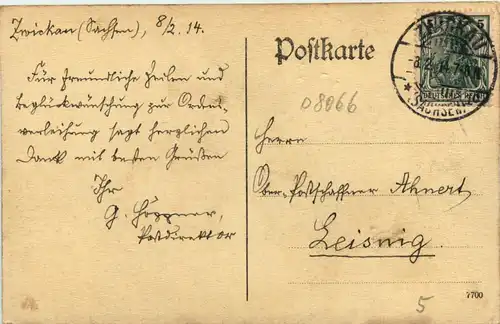 Zwickau (Sachsen), 8/2. 14.
Für freundliche Zeilen und
Beglückwünschung zur Ordens-
verleihung sagt herzlichen
Dank mit besten Grüßen
Ihr
G. Höppner,
Postdirektor
Postkarte
ZWICKAU
SACHSEN
5
08066
Herrn
Ober-Postschaffner Ahnert
Leisnig.
5
7700